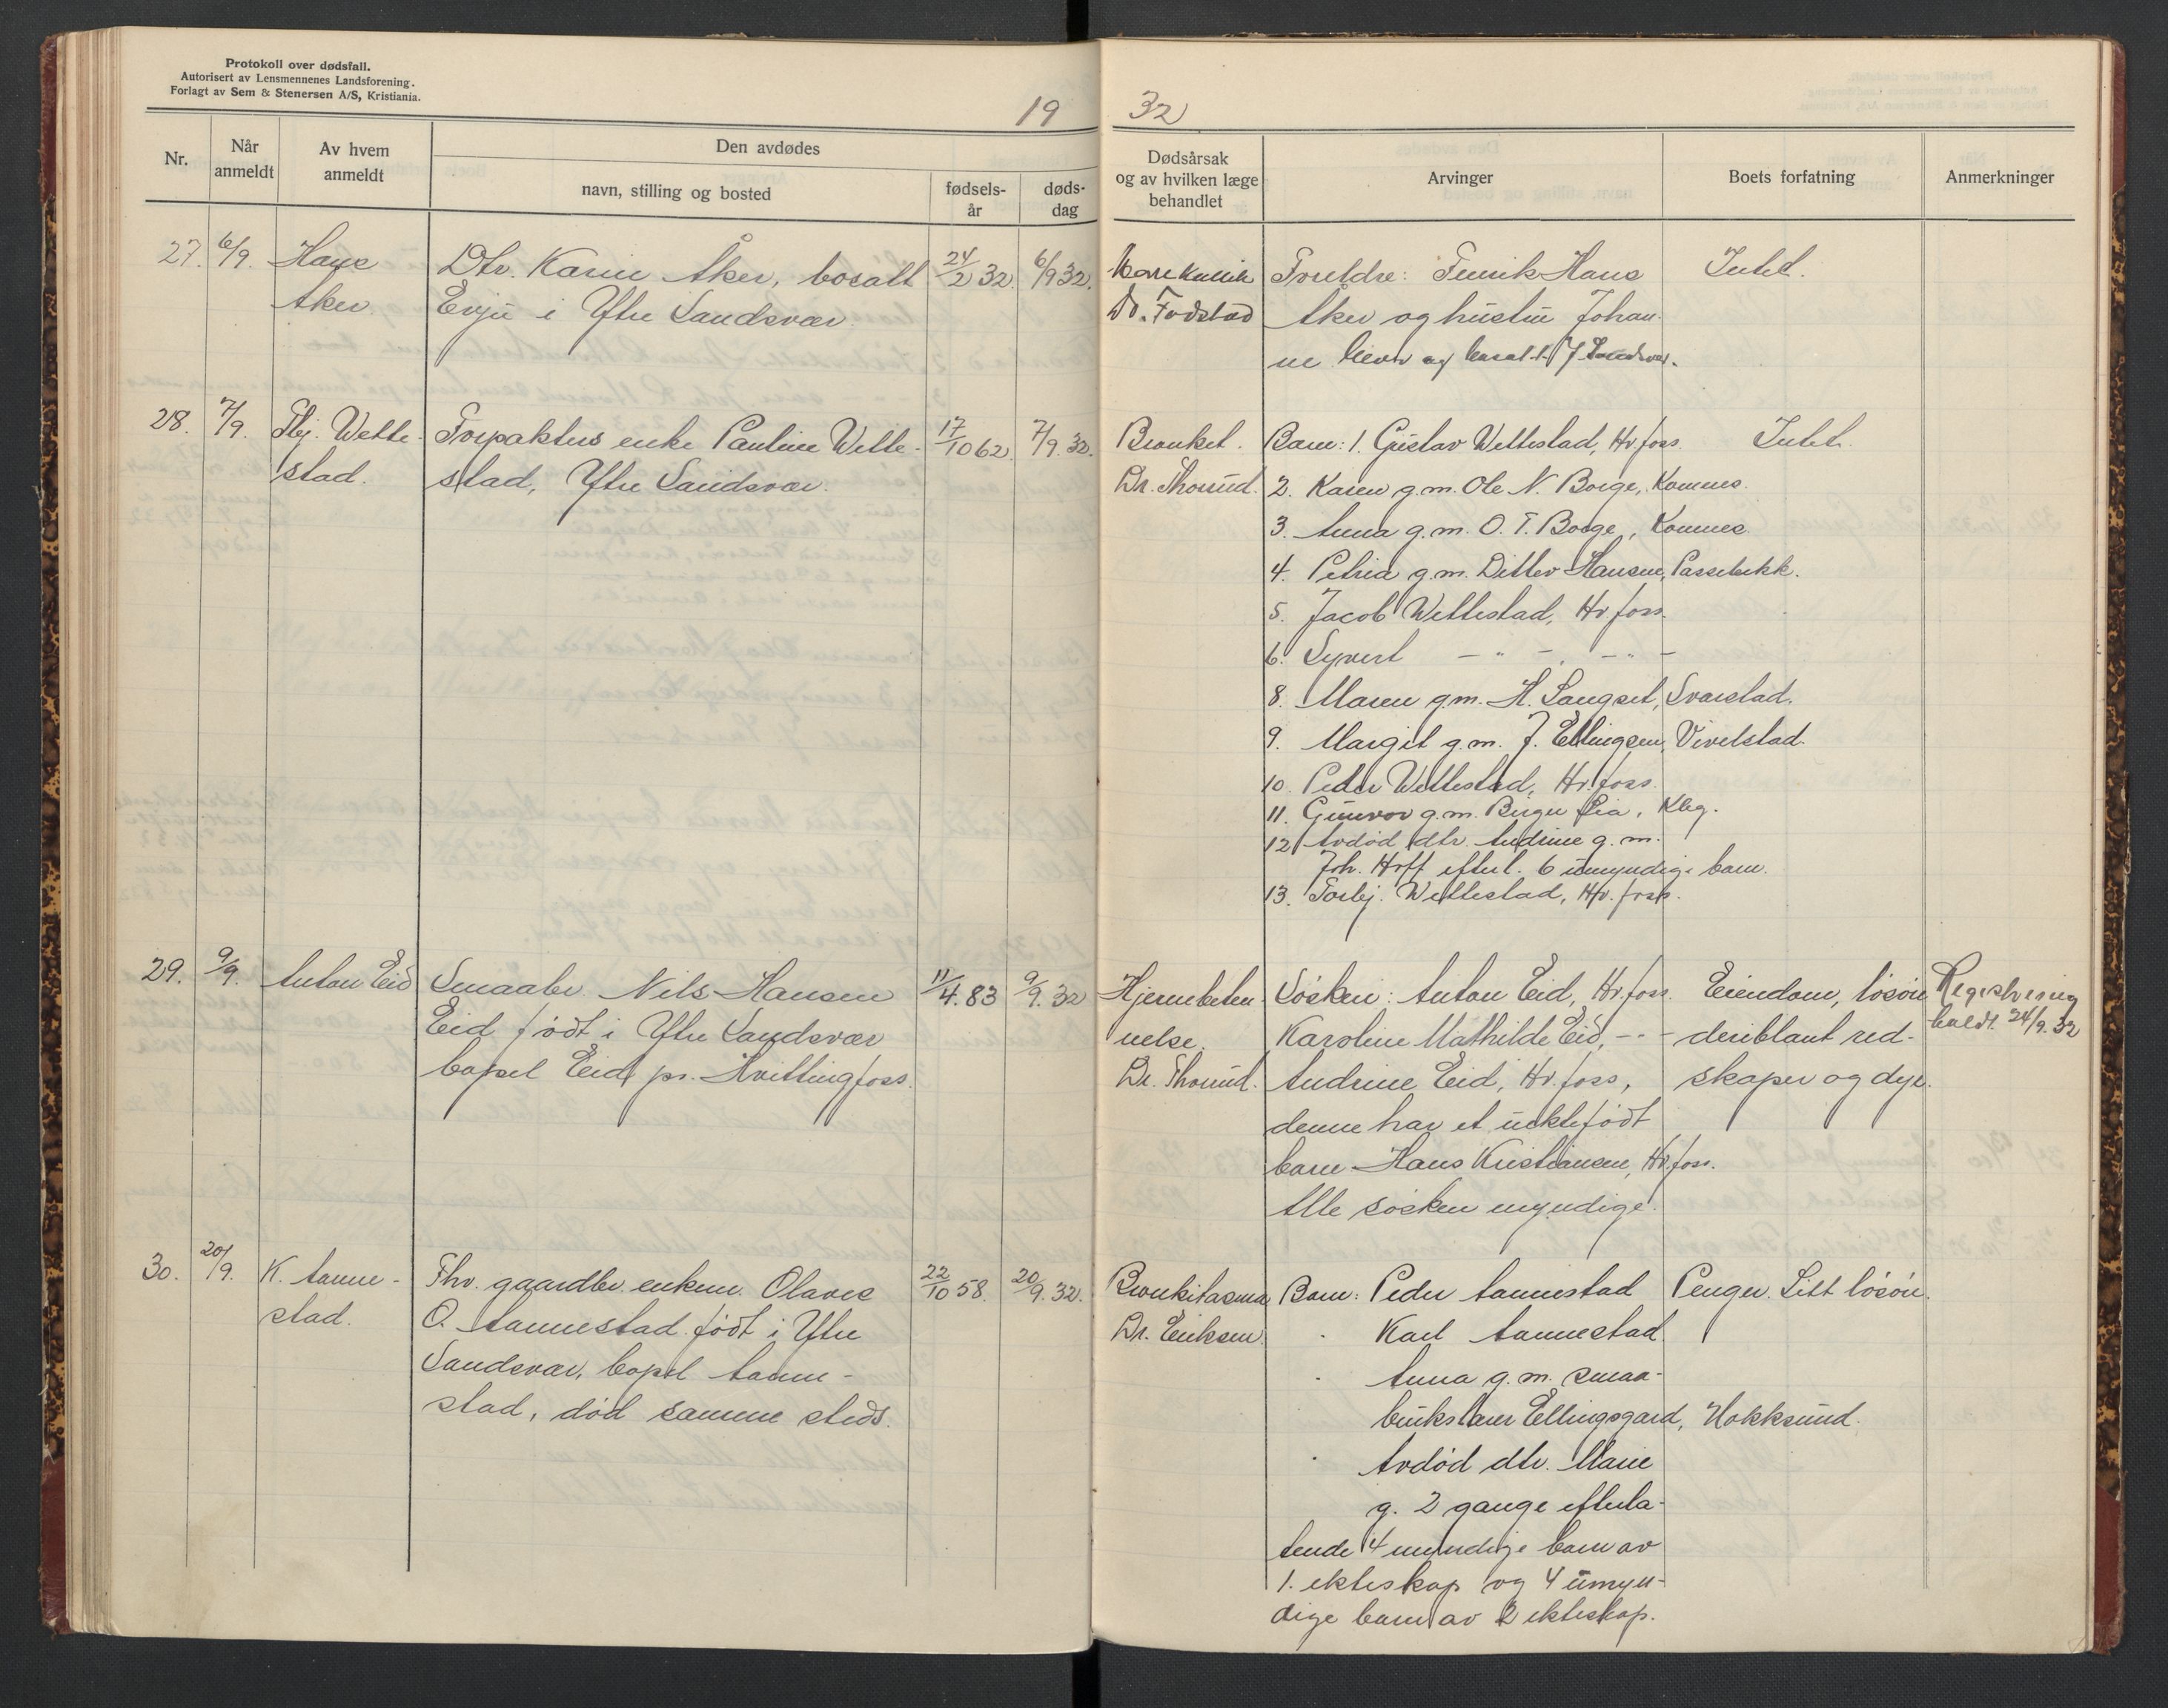 Protokoll over dødsfall.
Autorisert av Lensmennenes Landsforening.
Forlagt av Sem & Stenersen A/S, Kristiania.
19 32
Nr.
Når
anmeldt
Av hvem
anmeldt
Den avdødes
navn, stilling og bosted
fødsels-
år
døds-
dag
Dødsårsak
og av hvilken læge
behandlet
Arvinger
Boets forfatning
Anmerkninger
27. 6/9. Hans
Aker.
Dtr. Karin Åker, bosatt
Evju i Ytre Sandsvær.
24/2 32. 6/9 32.
Dr. Fodstad
Foreldre: Fenrik Hans
Aker og hustru Johan-
ne bosatt Y Sandsvær.
Intet.
28. 7/9. Tbj. Wette-
stad.
Forpakters enke Pauline Wette-
stad, Ytre Sandsvær.
17/10 62. 7/9. 32.
Bronket.
Dr. Thorud.
Barn: 1. Gustav Wettestad, Hv.foss.
2. Karen g.m. Ole N. Borge, Komnes.
3. Anna g.m. O. T. Borge, Komnes.
4. Petrea g.m. Ditlev Hansen, Passebekk.
5. Jacob Wettestad, Hv foss.
6. Syvert — " —. — " —
8. Maren g.m. H. Langset, Svarstad.
9. Margit g.m. J. Ellingsen, Vivelstad.
10. Peder Wettestad, Hv.foss.
11. Gunvor g.m. Birger Lia, Kbg.
12 Avdød dtr. Andrine g.m.
Joh. Hoff efterl. 6 umyndige barn.
13. Torbj. Wettestad, Hv. foss.
Intet.
29. 9/9. Anton Eid
Smaabr. Nils Hansen
Eid født i Ytre Sandsvær
bopel Eid pr. Hvittingfoss.
11/4. 83 9/9. 32
Hjernebeten-
nelse.
Dr. Thorud.
Søsken: Anton Eid, Hv.foss.
Karoline Mathilde Eid, - - -
Andrine Eid, Hv. foss,
denne har et uektefødt
barn Hans Kristiansen, Hv.foss.
Alle søsken myndige.
Eiendom, løsøre
deriblant red-
skaper og dyr.
Registrering
holdt 24/9. 32
30. 20/9. K. Aanne-
stad.
Fhv. gaardbr. enkem. Olaves
O. Aannestad født i Ytre
Sandsvær, bopel Aanne-
stad, død samme steds.
22/10 58. 20/9. 32.
Bronkitasma
Dr. Eriksen.
Barn: Peder Aannestad
" Karl Aannestad
" Anna g.m. smaa-
bruks Ellingsgard, Hokksund.
" Avdød dtr. Marie
g. 2 gange efterla-
tende 4 myndige barn av
1. ekteskap og 4 umyn-
dige barn av 2 ekteskap.
Penger. Litt løsøre.